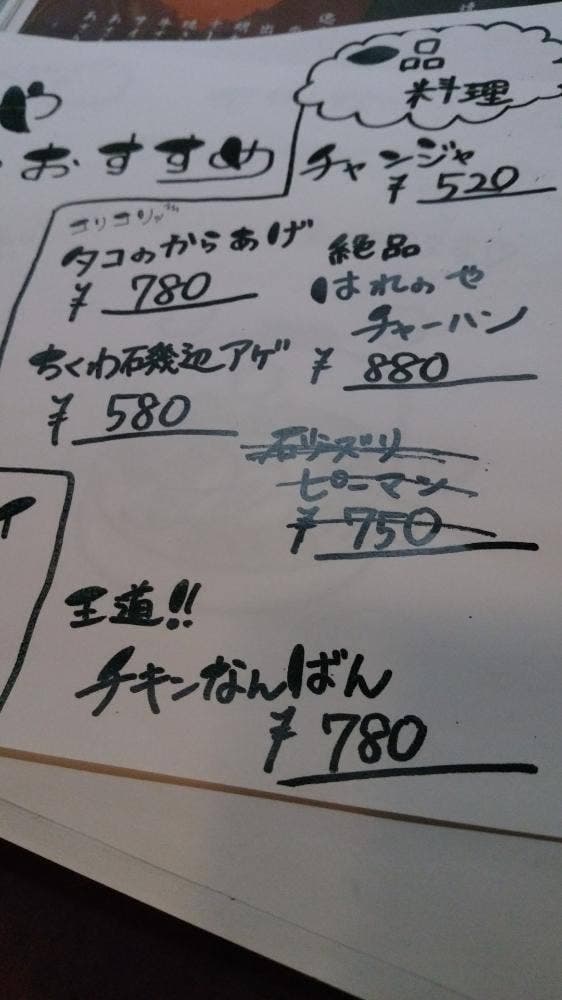 一品
料理
や
おすすめ
チャンジャ
¥ 520
コリコリッ
タコのからあげ
¥ 780
絶品
はれのや
チャーハン
¥ 880
ちくわ磯辺アゲ
¥ 580
石リズリ
ピーマン
¥ 750
王道!!
チキンなんばん
¥ 780